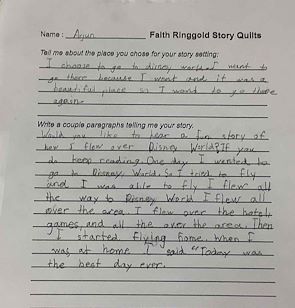 Name: Arjun Faith Ringgold Story Quilts
Tell me about the place you chose for your story setting:
I choose to go to disney world I want to
go there because I went and it was a
beautiful place so I want to go there
again.
Write a couple paragraphs telling me your story.
Would you like to hear a fun story of
how I flew over Disney World? If you
do keep reading. One day I wanted to
go to Disney World. So I tried to fly
and I was able to fly I flew all
the way to Disney World I flew all
over the area. I flew over the hotels
games, and all the over the area. Then
I started flying home. When I
was at home I said "Today was
the best day ever.